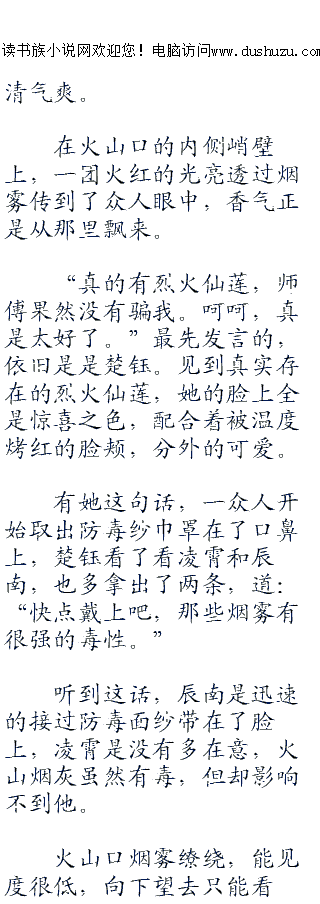 读书族小说网欢迎您！电脑访问www.dushuzu.com
清气爽。
在火山口的内侧峭壁
上，一团火红的光亮透过烟
雾传到了众人眼中，香气正
是从那里飘来。
“真的有烈火仙莲，师
傅果然没有骗我。呵呵，真
是太好了。”最先发言的，
依旧是是楚钰。见到真实存
在的烈火仙莲，她的脸上全
是惊喜之色，配合着被温度
烤红的脸颊，分外的可爱。
有她这句话，一众人开
始取出防毒纱巾罩在了口鼻
上，楚钰看了看凌霄和辰
南，也多拿出了两条，道：
“快点戴上吧，那些烟雾有
很强的毒性。”
听到这话，辰南是迅速
的接过防毒面纱带在了脸
上，凌霄是没有多在意，火
山烟灰虽然有毒，但却影响
不到他。
火山口烟雾缭绕，能见
度很低，向下望去只能看